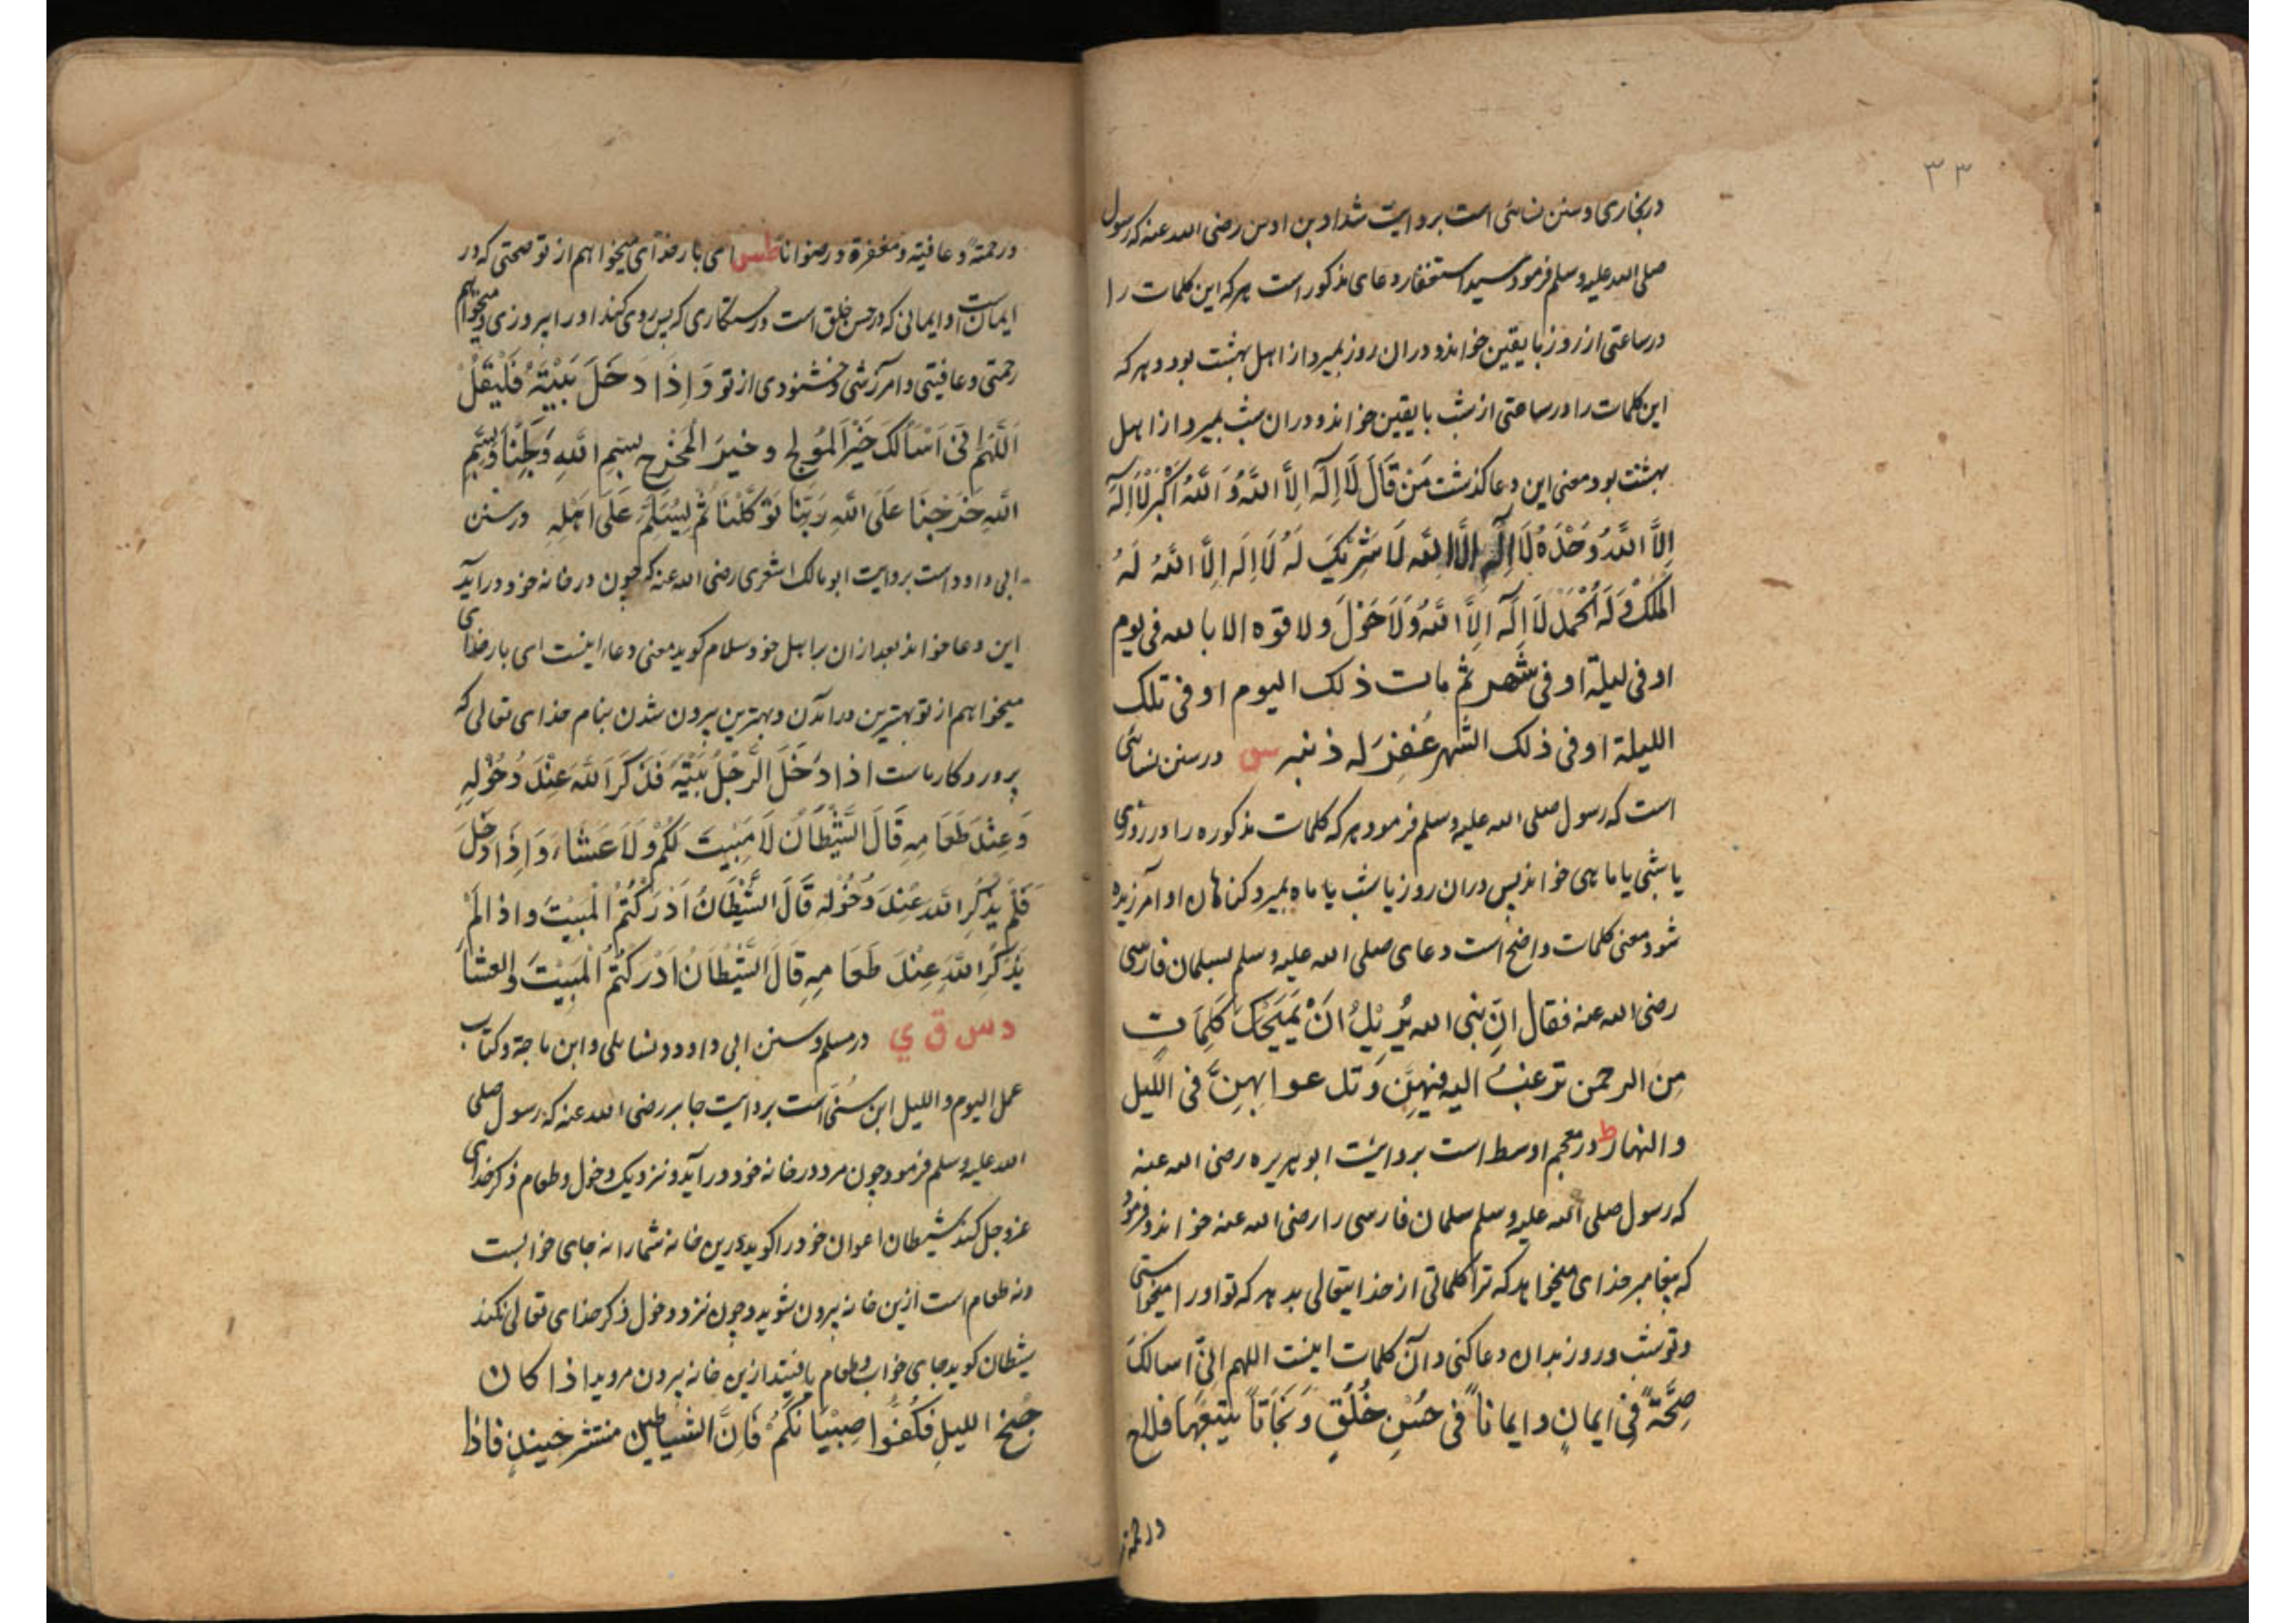 ۳۳
در بخاری و سنن نسائی است بروایت شداد بن اوس رضی الله عنه که رسول
صلی الله علیه وسلم فرمود سید استغفار دعای مذکور است هر که این کلمات را
در ساعتی از روز با یقین خواند و در ان روز بمیرد از اهل بهشت بود و هر که
این کلمات را در ساعتی از شب با یقین خواند و در ان شب بمیرد از اهل
بهشت بود و معنی این دعا کذشت مَنْ قَالَ لَا اِلٰهَ اِلَّا اللهُ وَ اللهُ اَکْبَر لَا اِلٰهَ
اِلَّا اللهُ وَحْدَهُ لَا اِلٰهَ اِلَّا الله لَا شَرِیْکَ لَهُ لَا اِلٰه اِلَّا اللهُ لَهُ
المُلْكُ وَلَهُ الْحَمْدُ لَا اِلٰهَ اِلَّا اللهُ وَلَا حَوْلَ ولا قوه الا بالله فی یوم
او فی لیلة او فی شَهر ثم مات ذلک الیوم او فی تلک
اللیلة او فی ذلک الشهر غُفِرَ له ذنبه س در سنن نسائی
است که رسول صلی الله علیه وسلم فرمود هر که کلمات مذکوره را در روزی
یا شبی یا ماهی خواند پس در ان روز یا شب یا ماه بمیرد کناهان او آمرزیده
شود و معنی کلمات واضح است دعای صلی الله علیه وسلم لسلمان فارسی
رضی الله عنه فقال انّ نبی الله یُرِیْدُ اَنْ یَمْنَحَكَ کَلِمَاتٍ
مِنَ الرحمن ترغبُ الیه فیهِنَّ وَتدعوا بهِنَّ فی اللَّیل
والنهار ط در معجم اوسط است بروایت ابو هریره رضی الله عنه
که رسول صلی الله علیه وسلم سلمان فارسی را رضی الله عنه خواند و فرمود
که پیغامبر خدای میخواهد که ترا کلماتی از خدایتعالی بدهد که تو او را میخواستی
و تو شب و روز بدان دعا کنی و آن کلمات اینست اللهم انّی اسالکَ
صِحَّةً فی ایمانٍ وایماناً فی حُسْنِ خُلُقٍ وَنَجَاتاً یتبعُها فلاح
ورحمة
ورحمةً وعافیة ومغفرة ورضوانا طس ای بارخدای میخواهم از تو صحتی که در
ایمان است و ایمانی که در حسن خلق است و رستکاری که پس روی کند او را پیروزی و میخواهم
رحمتی و عافیتی و امرزشی و خشنودی از تو وَاِذَا دَخَلَ بَیْتَهُ فَلْیَقُلْ
اَللّٰهُمَّ اِنّیْ اَسْاَلُکَ خَیْرَ المَوْلِجِ وخیرَ الْمَخْرَجِ بِسْمِ اللهِ وَلَجْنَا وَبِسْمِ
اللهِ خَرَجْنَا عَلَی اللهِ رَبِّنَا تَوَکَّلْنَا ثُمَّ لِیُسَلِّمْ عَلَی اَهْلِهِ در سنن
ابی داود است بروایت ابو مالک اشعری رضی الله عنه که چون در خانه خود در آید
این دعا خواند بعد از ان بر اهل خود سلام کوید معنی دعا اینست ای بارخدای
میخواهم از تو بهترین در آمدن و بهترین بیرون شدن بنام خدای تعالی که
پروردکار ماست اذا دَخَلَ الرَّجُلُ بَیْتَهُ فَذَکَرَ اللهَ عِنْدَ دُخُوْلِهِ
وَعِنْدَ طَعَامِهِ قَالَ الشَّیْطَانُ لَا مَبِیْتَ لَکُمْ وَلَا عَشَاءَ وَاِذَا دَخَلَ
فَلَمْ یَذْکُرِ اللهَ عِنْدَ دُخُوْلِهِ قَالَ الشَّیْطَانُ اَدْرَکْتُمُ الْمَبِیْتَ واذا لَمْ
یَذْکُرِ اللهَ عِنْدَ طَعَامِهِ قَالَ الشَّیْطَانُ اَدْرَکْتُمُ الْمَبِیْتَ والعشا
د س ق ي در مسلم و سنن ابی داود و نسائی و ابن ماجة و کتاب
عمل الیوم واللیل ابن سُنّی است بروایت جابر رضی الله عنه که رسول صلی
الله علیه وسلم فرمود چون مرد در خانه خود در آید و نزدیک دخول و طعام ذکر خدای
عز و جل کند شیطان اعوان خود را کوید درین خانه شما را نه جای خوابست
و نه طعام است ازین خانه بیرون شوید و چون نزد دخول ذکر خدای تعالی نکند
شیطان کوید جای خواب و طعام یافتید ازین خانه بیرون مروید اذا کان
جُنْحُ اللیلِ فَکُفُّوا صِبْیَانَکُمْ فَاِنَّ الشیاطین منتشر حینئذٍ فاذا